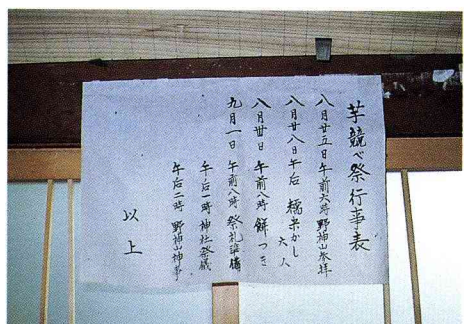 芋競べ祭行事表
八月廿五日 午前六時 野神山参拝
八月廿八日 午后 糯米かし
大人
八月卅日 午前八時 餅つき
九月一日 午前八時 祭礼準備
午后一時 神社祭儀
午后二時 野神山神事
以上